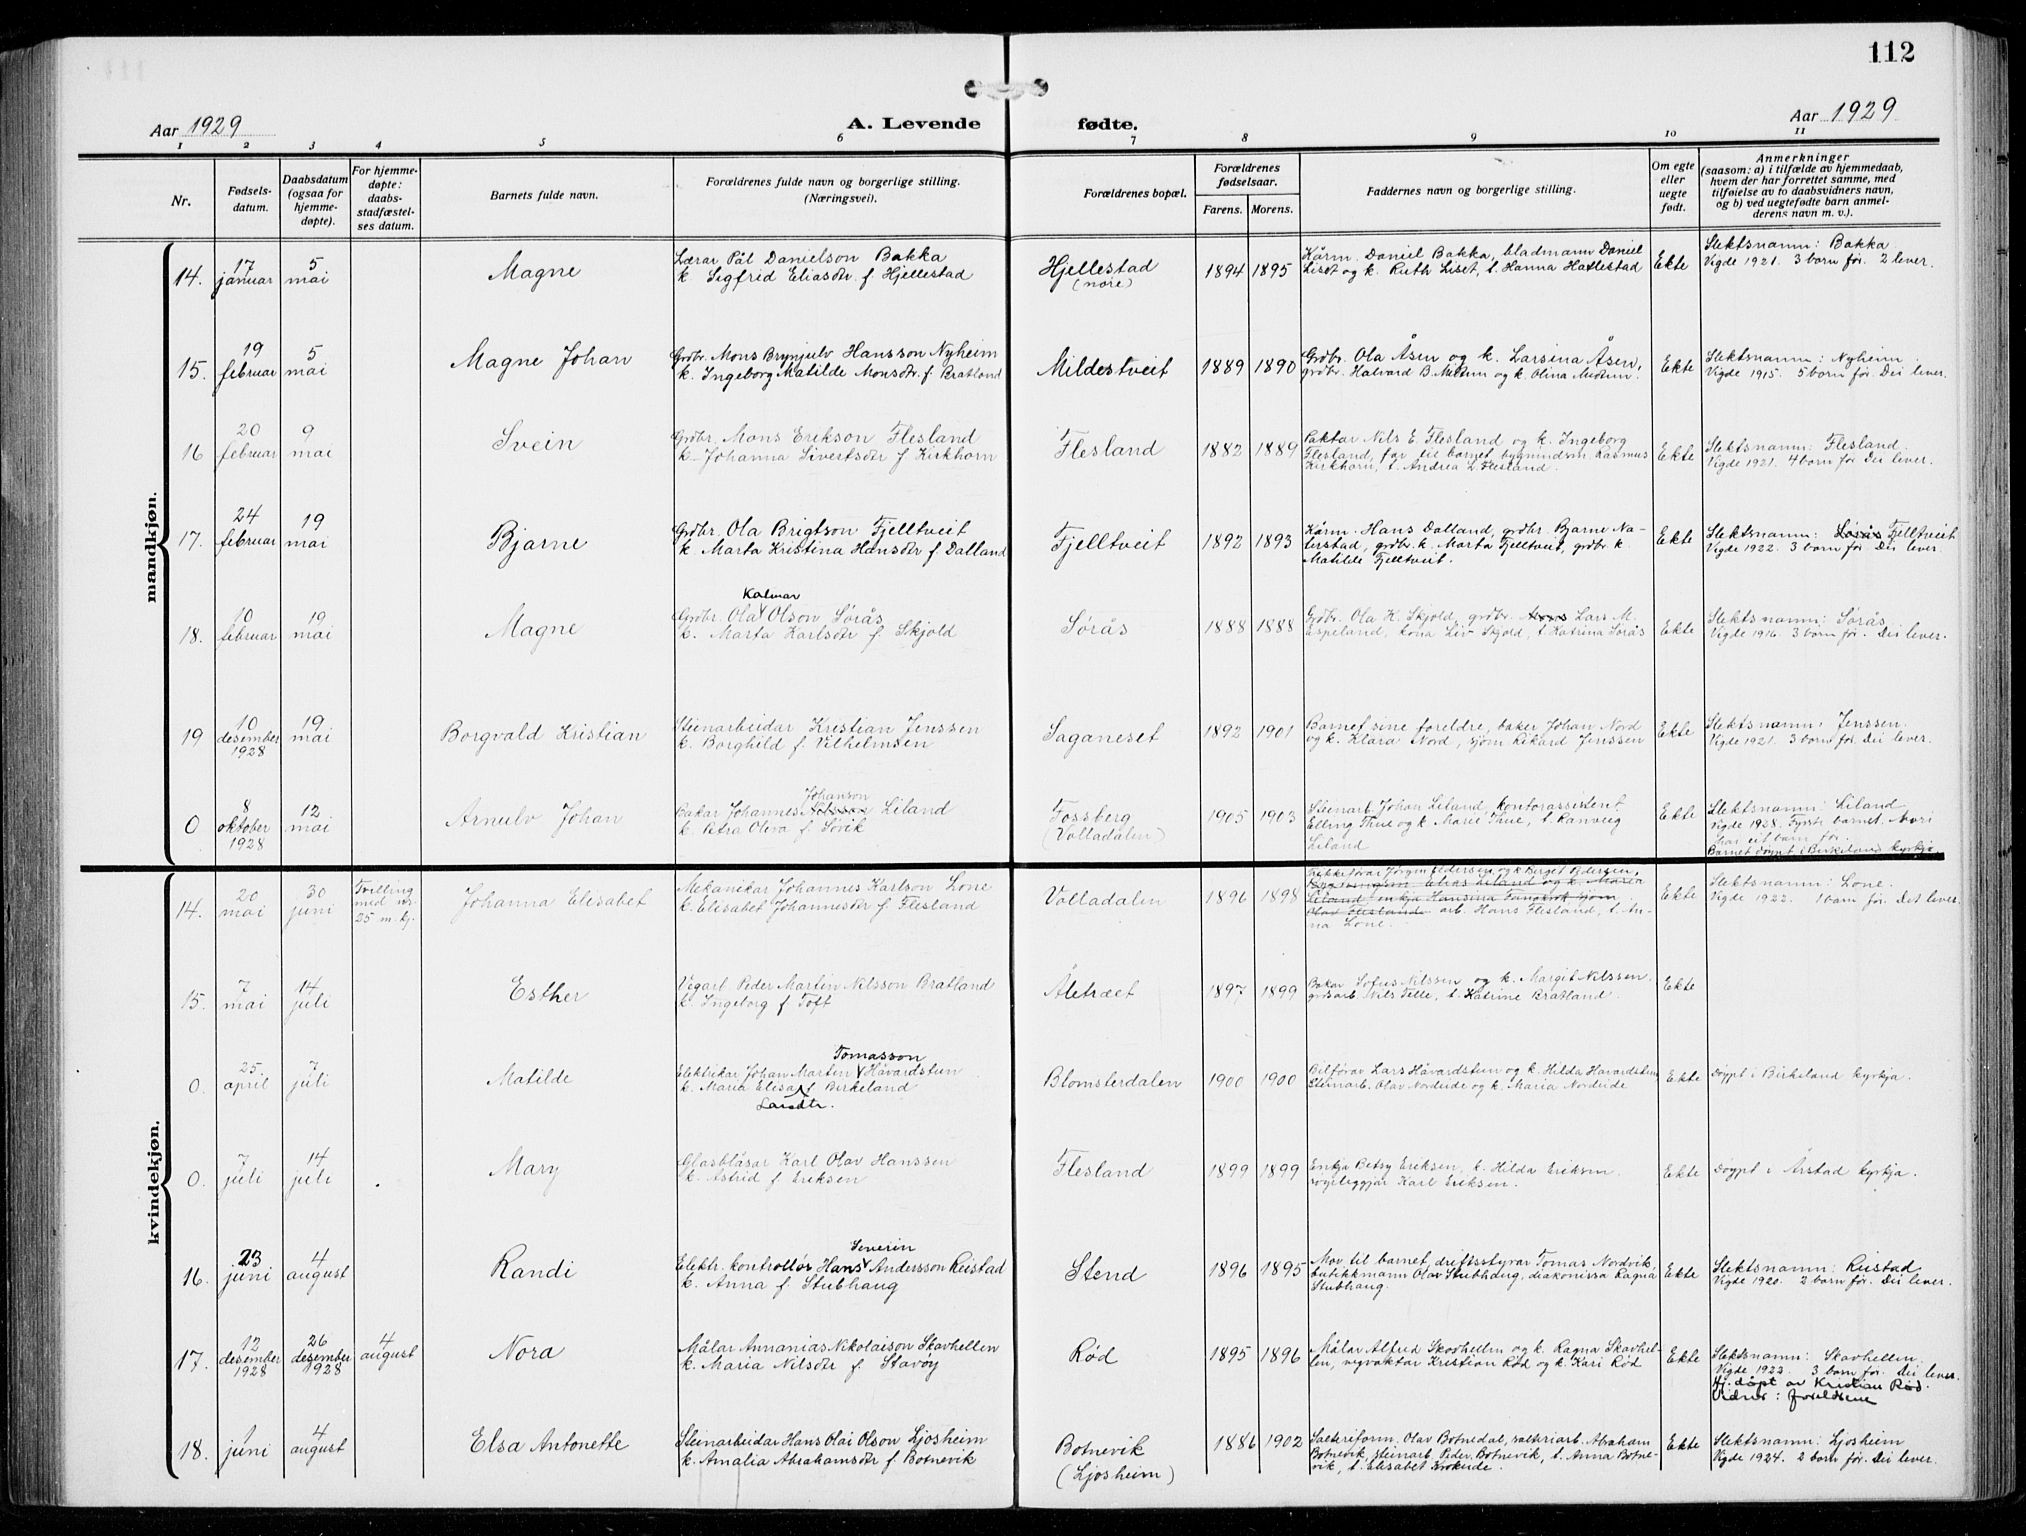 112
Aar 1929
A. Levende fødte.
Aar 1929
1 2 3 4 5 6 7 8 9 10 11
Nr.
Fødsels-
datum.
Daabsdatum
(ogsaa for
hjemme-
døpte).
For hjemme-
døpte:
daabs-
stadfæstel-
ses datum.
Barnets fulde navn.
Forældrenes fulde navn og borgerlige stilling.
(Næringsvei).
Forældrenes bopæl.
Forældrenes
fødselsaar.
Farens. Morens.
Faddernes navn og borgerlige stilling.
Om egte
eller
uegte
født.
Anmerkninger
(saasom: a) i tilfælde av hjemmedaab,
hvem der har forrettet samme, med
tilføielse av to daabsvidners navn,
og b) ved uegtefødte barn anmel-
derens navn m. v.).
mandkjøn.
14.
17
januar
5
mai
Magne
Lærar Pål Danielson Bakka
k. Sigfrid Eliasdtr. f. Hjellestad
Hjellestad
(nore)
1894 1895
Kårm. Daniel Bakka, bladmann Daniel
Liset og k. Ruth Liset, t. Hanna Hatlestad
Ekte
Slektsnamn: Bakka
Vigde 1921. 3 born før. 2 lever.
15.
19
februar
5
mai
Magne Johan
Grdbr. Mons Brynjulv Hansson Nyheim
k. Ingeborg Matilde Monsdtr. f. Bratland
Mildestveit
1889 1890
Grdbr. Ola Åsen og k. Larsina Åsen,
grdbr. Halvard B. Midtun og k. Olina Midtun.
Ekte
Slektsnamn: Nyheim
Vigde 1915. 5 born før. Dei lever.
16
20
februar
9
mai
Svein
Grdbr. Mons Erikson Flesland
k. Johanna Sivertsdtr. f. Kirkhorn
Flesland
1882 1889
Paktar Nils E. Flesland og k. Ingeborg
Flesland, far til barnet, bygnindsm. Rasmus
Kirkhorn, t. Andrea L. Flesland.
Ekte
Slektsnamn: Flesland.
Vigde 1921. 4 born før. Dei lever.
17.
24
februar
19
mai
Bjarne
Grdbr. Ola Brigtson Fjelltveit
k. Marta Kristina Hansdtr. f. Dalland
Fjelltveit
1892 1893
Kårm. Hans Dalland, grdbr. Bjarne Na-
terstad, grdbr. k. Marta Fjelltveit, grdbr. k.
Matilde Fjelltveit.
Ekte
Slektsnamn: Sørås Fjelltveit
Vigde 1922. 3 born før. Dei lever.
18.
10
februar
19
mai
Magne
Kalmar
Grdbr. Ola Olson Sørås
k. Marta Karlsdtr. f. Skjold
Sørås
1888 1888
Grdbr. Ola K. Skjold, grdbr. Lars M.
Espeland, kona Liv Skjold, t. Katrina Sørås
Ekte
Slektsnamn: Sørås
Vigde 1916. 3 born før. Dei lever.
19
10
desember
1928
19
mai
Borgvald Kristian
Steinarbeidar Kristian Jenssen
k. Borghild f. Vilhelmsen
Saganeset
1892 1901
Barnet sine foreldre, baker Johan Nord
og k. Klara Nord, sjøm. Rikard Jenssen
Ekte
Slektsnamn: Jenssen.
Vigde 1921. 3 born før. Dei lever.
0
8
oktober
1928
12
mai
Arnulv Johan
Johanson
Bakar Johannes Nilsson Liland
k. Petra Oleva f. Søvik
Fossberg
(Volladalen)
1905 1903
Steinarb. Johan Liland, kontorassistent
Elling Thue og k. Marie Thue, t. Ranveig
Liland
Ekte
Slektsnamn: Liland
Vigde 1928. Fyrste barnet. Mori
har eit barn før.
Barnet døypt i Birkeland kyrkja
kvindekjøn.
14.
20
mai
30
juni
Tvilling
med nr.
25 m. kj.
Johanna Elisabet
Mekanikar Johannes Karlson Lone
k. Elisabet Johannesdtr. f. Flesland
Volladalen
1896 1898
Trikkeførar Jørgen Pedersen og k. Berget Pedersen,
Bygningsm. Elias Liland og k. Maria
Liland enkja Hansina sjøm.
Olav Flesland arb. Hans Flesland, t. An-
na Lone.
Ekte
Slektsnamn: Lone.
Vigde 1922. 1 born før. Det lever.
15.
7
mai
14
juli
Esther
Vegarb. Peder Martin Nilsson Bratland
k. Ingeborg f. Toft
Åletræet
1897 1899
Bakar Sofus Nilssen og k. Margit Nilssen.
grdsarb. Nils Telle, t. Katrine Bratland.
Ekte
0.
25.
april
7
juli
Matilde
Tomasson
Elektrikar Johan Martin Håvardstun
k. Maria Elisa f. Birkeland
Larsdtr.
Blomsterdalen
1900 1900
Bilførar Lars Håvardstun og k. Hilda Håvardstun,
Steinarb. Olav Nordeide og k. Maria Nordeide
Ekte
Døypt i Birkeland kyrkja.
0.
7
juli
14
juli
Mary
Glasblåsar Karl Olav Hanssen
k. Astrid f. Eriksen
Flesland
1899 1899
Enkja Betsy Eriksen, k. Hilda Eriksen
røyrleggjar Karl Eriksen.
Ekte
Døypt i Årstad kyrkja.
16.
23
juni
4
august
Randi
Severin
Elektr. kontrollør Hans Andersson Reistad
k. Anna f. Stubhaug
Stend
1896 1895
Mor til barnet, driftsstyrar Tomas Nordvik,
butikkmann Olav Stubhaug, diakonissa Ragna
Stubhaug.
Ekte
Slektsnamn: Reistad
Vigde 1920. 2 born før. Dei lever.
17.
12
desember
1928
26
desember
1928
4
august
Nora
Målar Annanias Nikolaison Skavhellen
k. Maria Nilsdtr. f. Stavøy
Rød
1895 1896
Målar Alfred Skavhellen og k. Ragna Skavhel-
len, vegvaktar Kristian Rød og k. Kari Rød
Ekte
Slektsnamn: Skavhellen.
Vigde 1922. 3 born før. Dei lever.
Hj. døpt av Kristian Rød.
Vidner: foreldrene
18.
1
juni
4
august
Elsa Antonette
Steinarbeidar Hans Olai Olson Ljosheim
k. Amalia Abrahamsdtr. f. Botnevik
Botnevik
(Ljosheim)
1886 1902
Salteriform. Olav Botnedal, salteriarb. Abraham
Botnevik, steinarb. Peder Botnevik, t. Anna Botne-
vik, t. Elisabet Krokeide.
Ekte
Slektsnamn: Ljosheim
Vigde 1924. 2 born før. Dei lever.